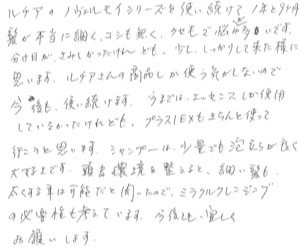 ルチアのノヴェルモイシリーズを使い続けて1年と9ヶ月
髪が本当に細く、コシも無く、クセもで悩み多いです。
分け目がさみしかったけれども、少し、しっかりして来た様に
思います。ルチアさんの商品しか使う気がしないので
今後も、使い続けます。今までは、エッセンスしか使用
していなかったけれども、プラスIEXもきちんと使って
行こうと思います。シャンプーは、少量でも泡立ちが良く
大すきです。頭皮環境を整えると、細い髪も、
太くする事は可能だと聞いたので、ミラクルクレンジング
の必要性も考えています。今後とも、宜しく
お願いします。